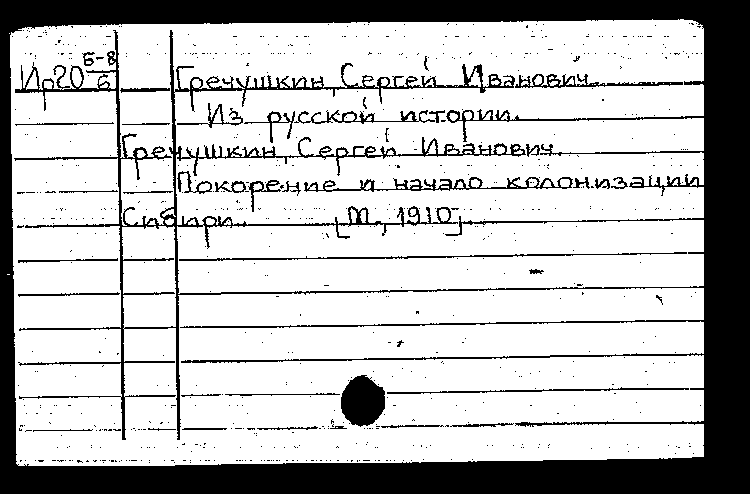 Ир20 Б-8/6 Гречушкин, Сергей Иванович.
Из русской истории.
Гречушкин, Сергей Иванович.
Покорение и начало колонизации
Сибири. [М., 1910].